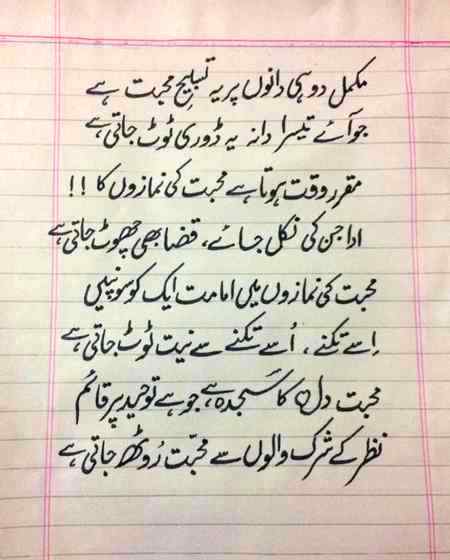 مکمل دو ہی دانوں پر یہ تسبیحِ محبت ہے
جو آئے تیسرا دانہ یہ ڈوری ٹوٹ جاتی ہے
مقرر وقت ہوتا ہے محبت کی نمازوں کا !!
ادا جن کی نکل جائے، قضا بھی چھوٹ جاتی ہے
محبت کی نمازوں میں امامت ایک کو سونپیں
اِسے تکنے، اُسے تکنے سے نیت ٹوٹ جاتی ہے
محبت دل ♡ کا سَجدہ ہے جو ہے توحید پر قائم
نظر کے شرک والوں سے محبّت رُوٹھ جاتی ہے